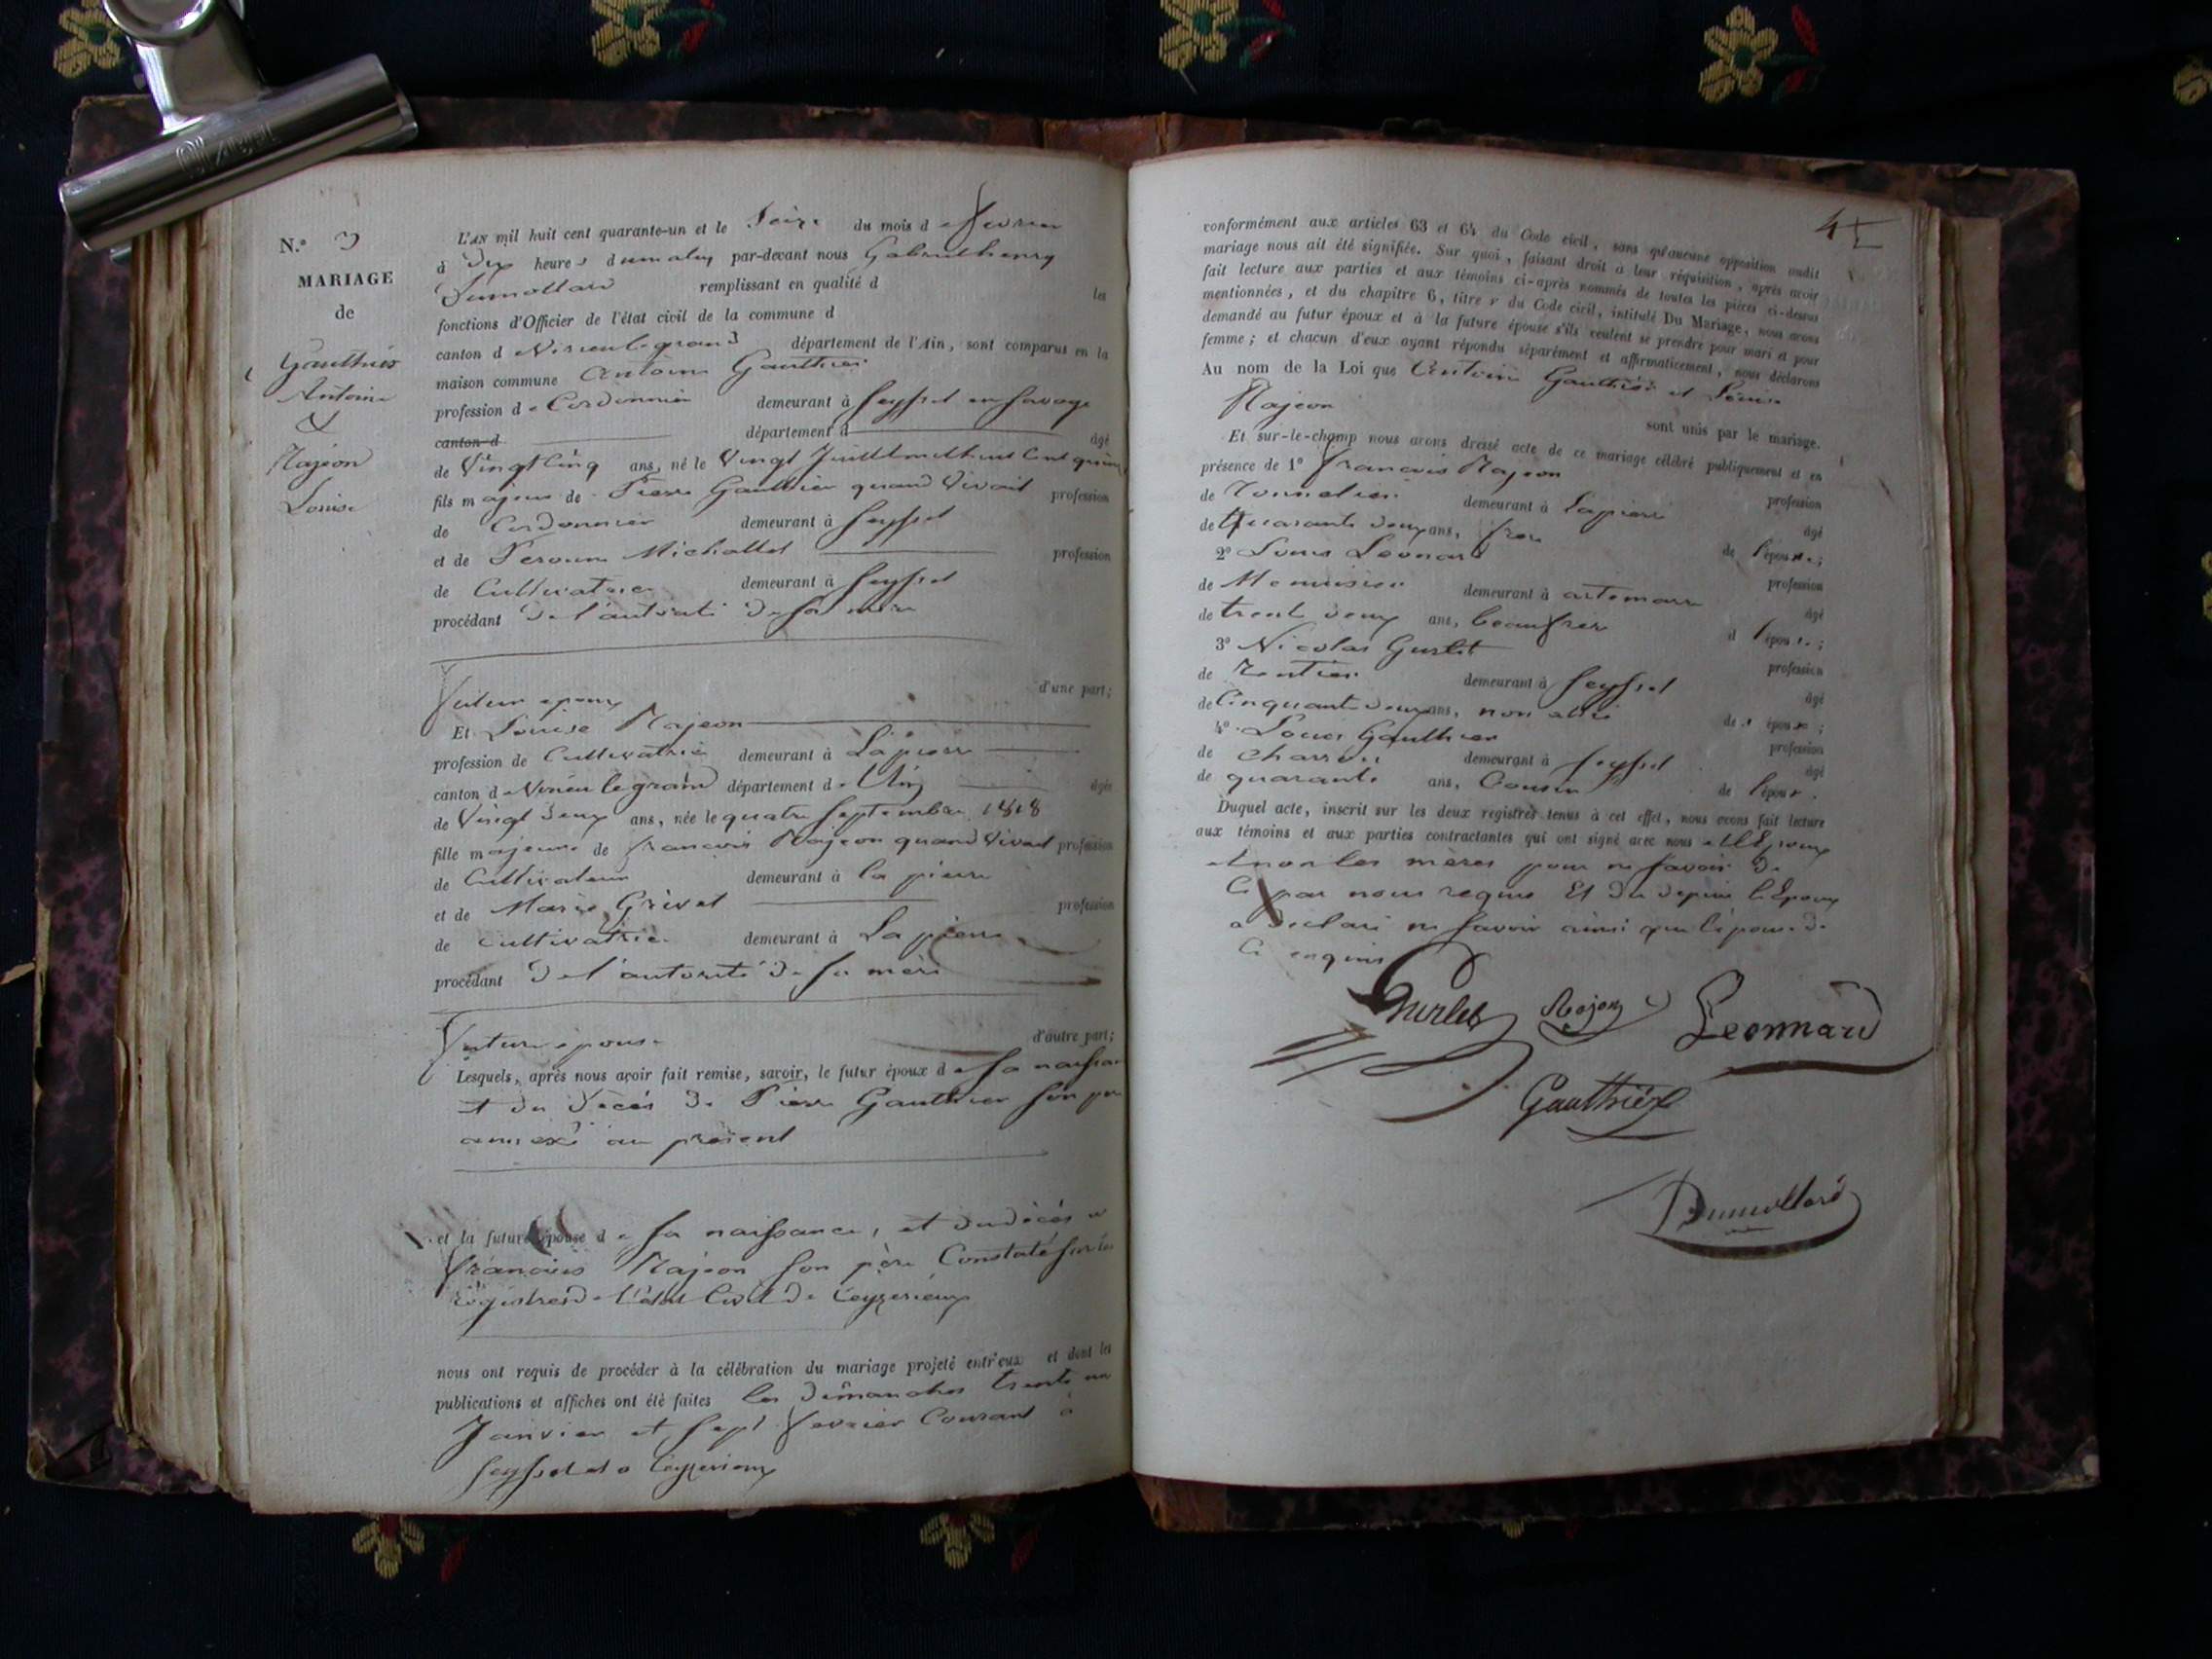 N.o 3
MARIAGE
de
Gauthier
Antoine
&
Rajeon
Louise
L'AN mil huit cent quarante-un et le Seize du mois de fevrier
à Dix heures dumatin par-devant nous Gabriel henry
Dumollard remplissant en qualité d les
fonctions d'Officier de l'état civil de la commune d
canton de Virieu le grand département de l'Ain, sont comparus en la
maison commune Antoine Gauthier
profession de Cordonnier demeurant à Seyssel en Savoye
canton d département d âgé
de Vingt Cinq ans, né le Vingt Juillet mil huit Cent quinze
fils majeur de Pierre Gauthier quand Vivait profession
de Cordonnier demeurant à Seyssel
et de Michallet profession
de Cultivatrice demeurant à Seyssel
procédant De l'autorité De sa mère
d'une part;
futur epoux
Et Louise Rajeon
profession de Cultivatrice demeurant à Lapierre
canton de Virieu le grand département de l'Ain âgée
de Vingt Deux ans, née le quatre Septembre 1818
fille majeure de francois Rajeon quand Vivait profession
de Cultivateur demeurant à la pierre
et de Marie Grivet profession
de Cultivatrice demeurant à La pierre
procédant De l'autorité De sa mère
future épouse d'autre part;
Lesquels, après nous avoir fait remise, savoir, le futur époux de sa naissance
et du Décès De Pierre Gauthier son père
annexé au présent
et la future épouse de sa naissance, et du décès de
francois Rajeon son père Constaté sur les
régistres De l'état Civil De Ceyzerieux
nous ont requis de procéder à la célébration du mariage projeté entr'eux et dont les
publications et affiches ont été faites les Dimanches trente un
Janvier et Sept fevrier Courant à
Seyssel et a Ceyzerieux
conformément aux articles 63 et 64 du Code civil, sans qu'aucune opposition audit
mariage nous ait été signifiée. Sur quoi, faisant droit à leur réquisition, après avoir
fait lecture aux parties et aux témoins ci-après nommés de toutes les pièces ci-dessus
mentionnées, et du chapitre 6, titre v du Code civil, intitulé Du Mariage, nous avons
demandé au futur époux et à la future épouse s'ils veulent se prendre pour mari et pour
femme; et chacun d'eux ayant répondu séparément et affirmativement, nous déclarons
Au nom de la Loi que Antoine Gauthier et Louise
Rajeon sont unis par le mariage.
Et sur-le-champ nous avons dressé acte de ce mariage célébré publiquement et en
présence de 1o francois Rajeon profession
de Tonnelier demeurant à Lapierre âgé
de Quarante deux ans, frere de l'épouse;
2o Louis Leonard profession
de Menuisier demeurant à artemare âgé
de trente deux ans, beaufrere d l'épouse;
3o Nicolas Gurlet profession
de Rentier demeurant à Seyssel âgé
de Cinquante deux ans, non allié des époux;
4o Louis Gauthier profession
de charron demeurant à Seyssel âgé
de quarante ans, Cousin de l'époux.
Duquel acte, inscrit sur les deux registres tenus à cet effet, nous avons fait lecture
aux témoins et aux parties contractantes qui ont signé avec nous
et non les mères pour ne savoir De
Ce par nous requis Et Du depuis l'Epoux
a Declaré ne savoir ainsi que l'épouse De
Ce enquis
Gurlet Rojon Leonnard
Gauthier
Dumollard